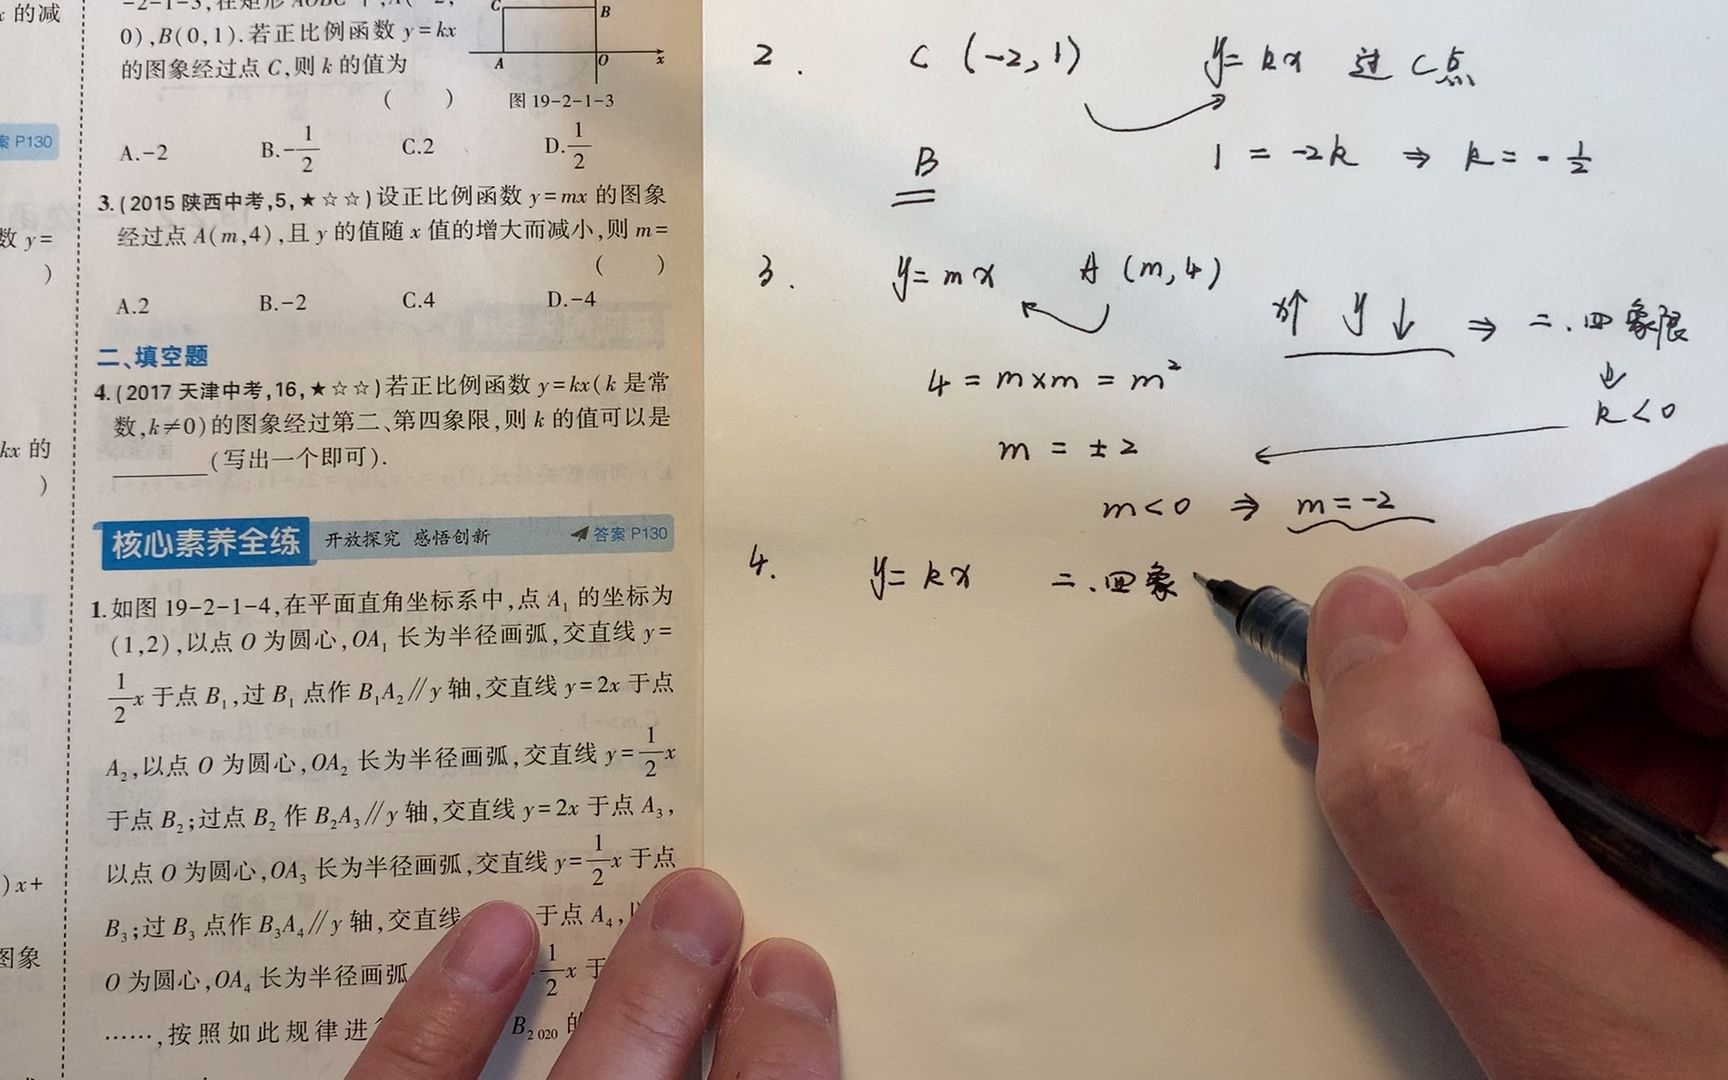 x 的减
案 P130
数 y=
)
kx 的
)
)x+
图象
0),B(0,1).若正比例函数 y=kx
的图象经过点 C,则 k 的值为
( )
C
B
A
O
x
图 19-2-1-3
A.-2 B.-1/2 C.2 D.1/2
3.(2015 陕西中考,5,★☆☆)设正比例函数 y=mx 的图象
经过点 A(m,4),且 y 的值随 x 值的增大而减小,则 m=
( )
A.2 B.-2 C.4 D.-4
二、填空题
4.(2017 天津中考,16,★☆☆)若正比例函数 y=kx(k 是常
数,k≠0)的图象经过第二、第四象限,则 k 的值可以是
________(写出一个即可).
核心素养全练 开放探究 感悟创新 答案 P130
1.如图 19-2-1-4,在平面直角坐标系中,点 A₁ 的坐标为
(1,2),以点 O 为圆心,OA₁ 长为半径画弧,交直线 y=
1/2x 于点 B₁,过 B₁ 点作 B₁A₂∥y 轴,交直线 y=2x 于点
A₂,以点 O 为圆心,OA₂ 长为半径画弧,交直线 y=1/2x
于点 B₂;过点 B₂ 作 B₂A₃∥y 轴,交直线 y=2x 于点 A₃,
以点 O 为圆心,OA₃ 长为半径画弧,交直线 y=1/2x 于点
B₃;过 B₃ 点作 B₃A₄∥y 轴,交直线 于点 A₄,
O 为圆心,OA₄ 长为半径画弧 1/2x 于
……,按照如此规律进 B₂₀₂₀ 的
2. C (-2,1) y=kx 过 C点
B 1 = -2k ⇒ k = -1/2
3. y=mx A (m,4)
x↑ y↓ ⇒ 二.四象限
4 = m×m = m² ⇓
k<0
m = ±2
m<0 ⇒ m=-2
4. y=kx 二.四象